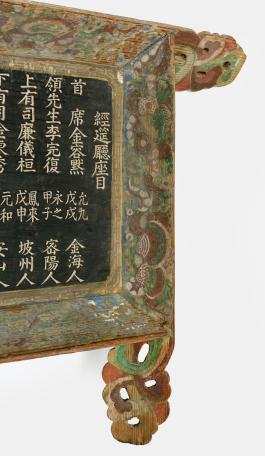 經筵廳座目
首席金容默 允九 戊戌 金海人
領先生李完復 永之 甲子 密陽人
上有司廉儀桓 鳳來 戊申 坡州人
元和